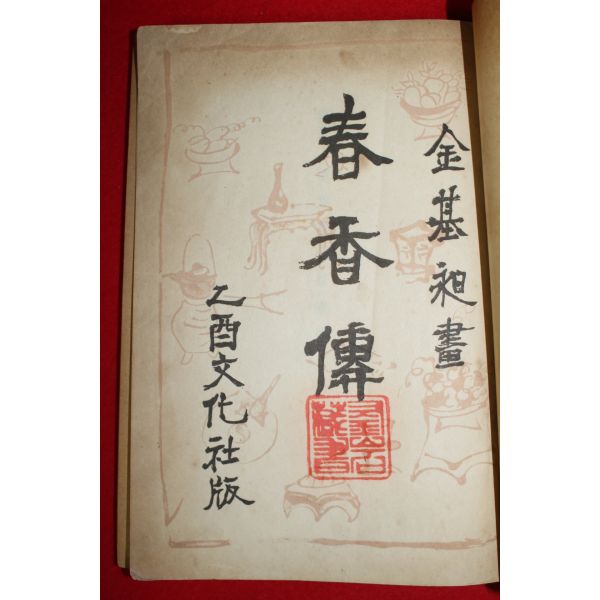 金基昶畫
春香傳
乙酉文化社版